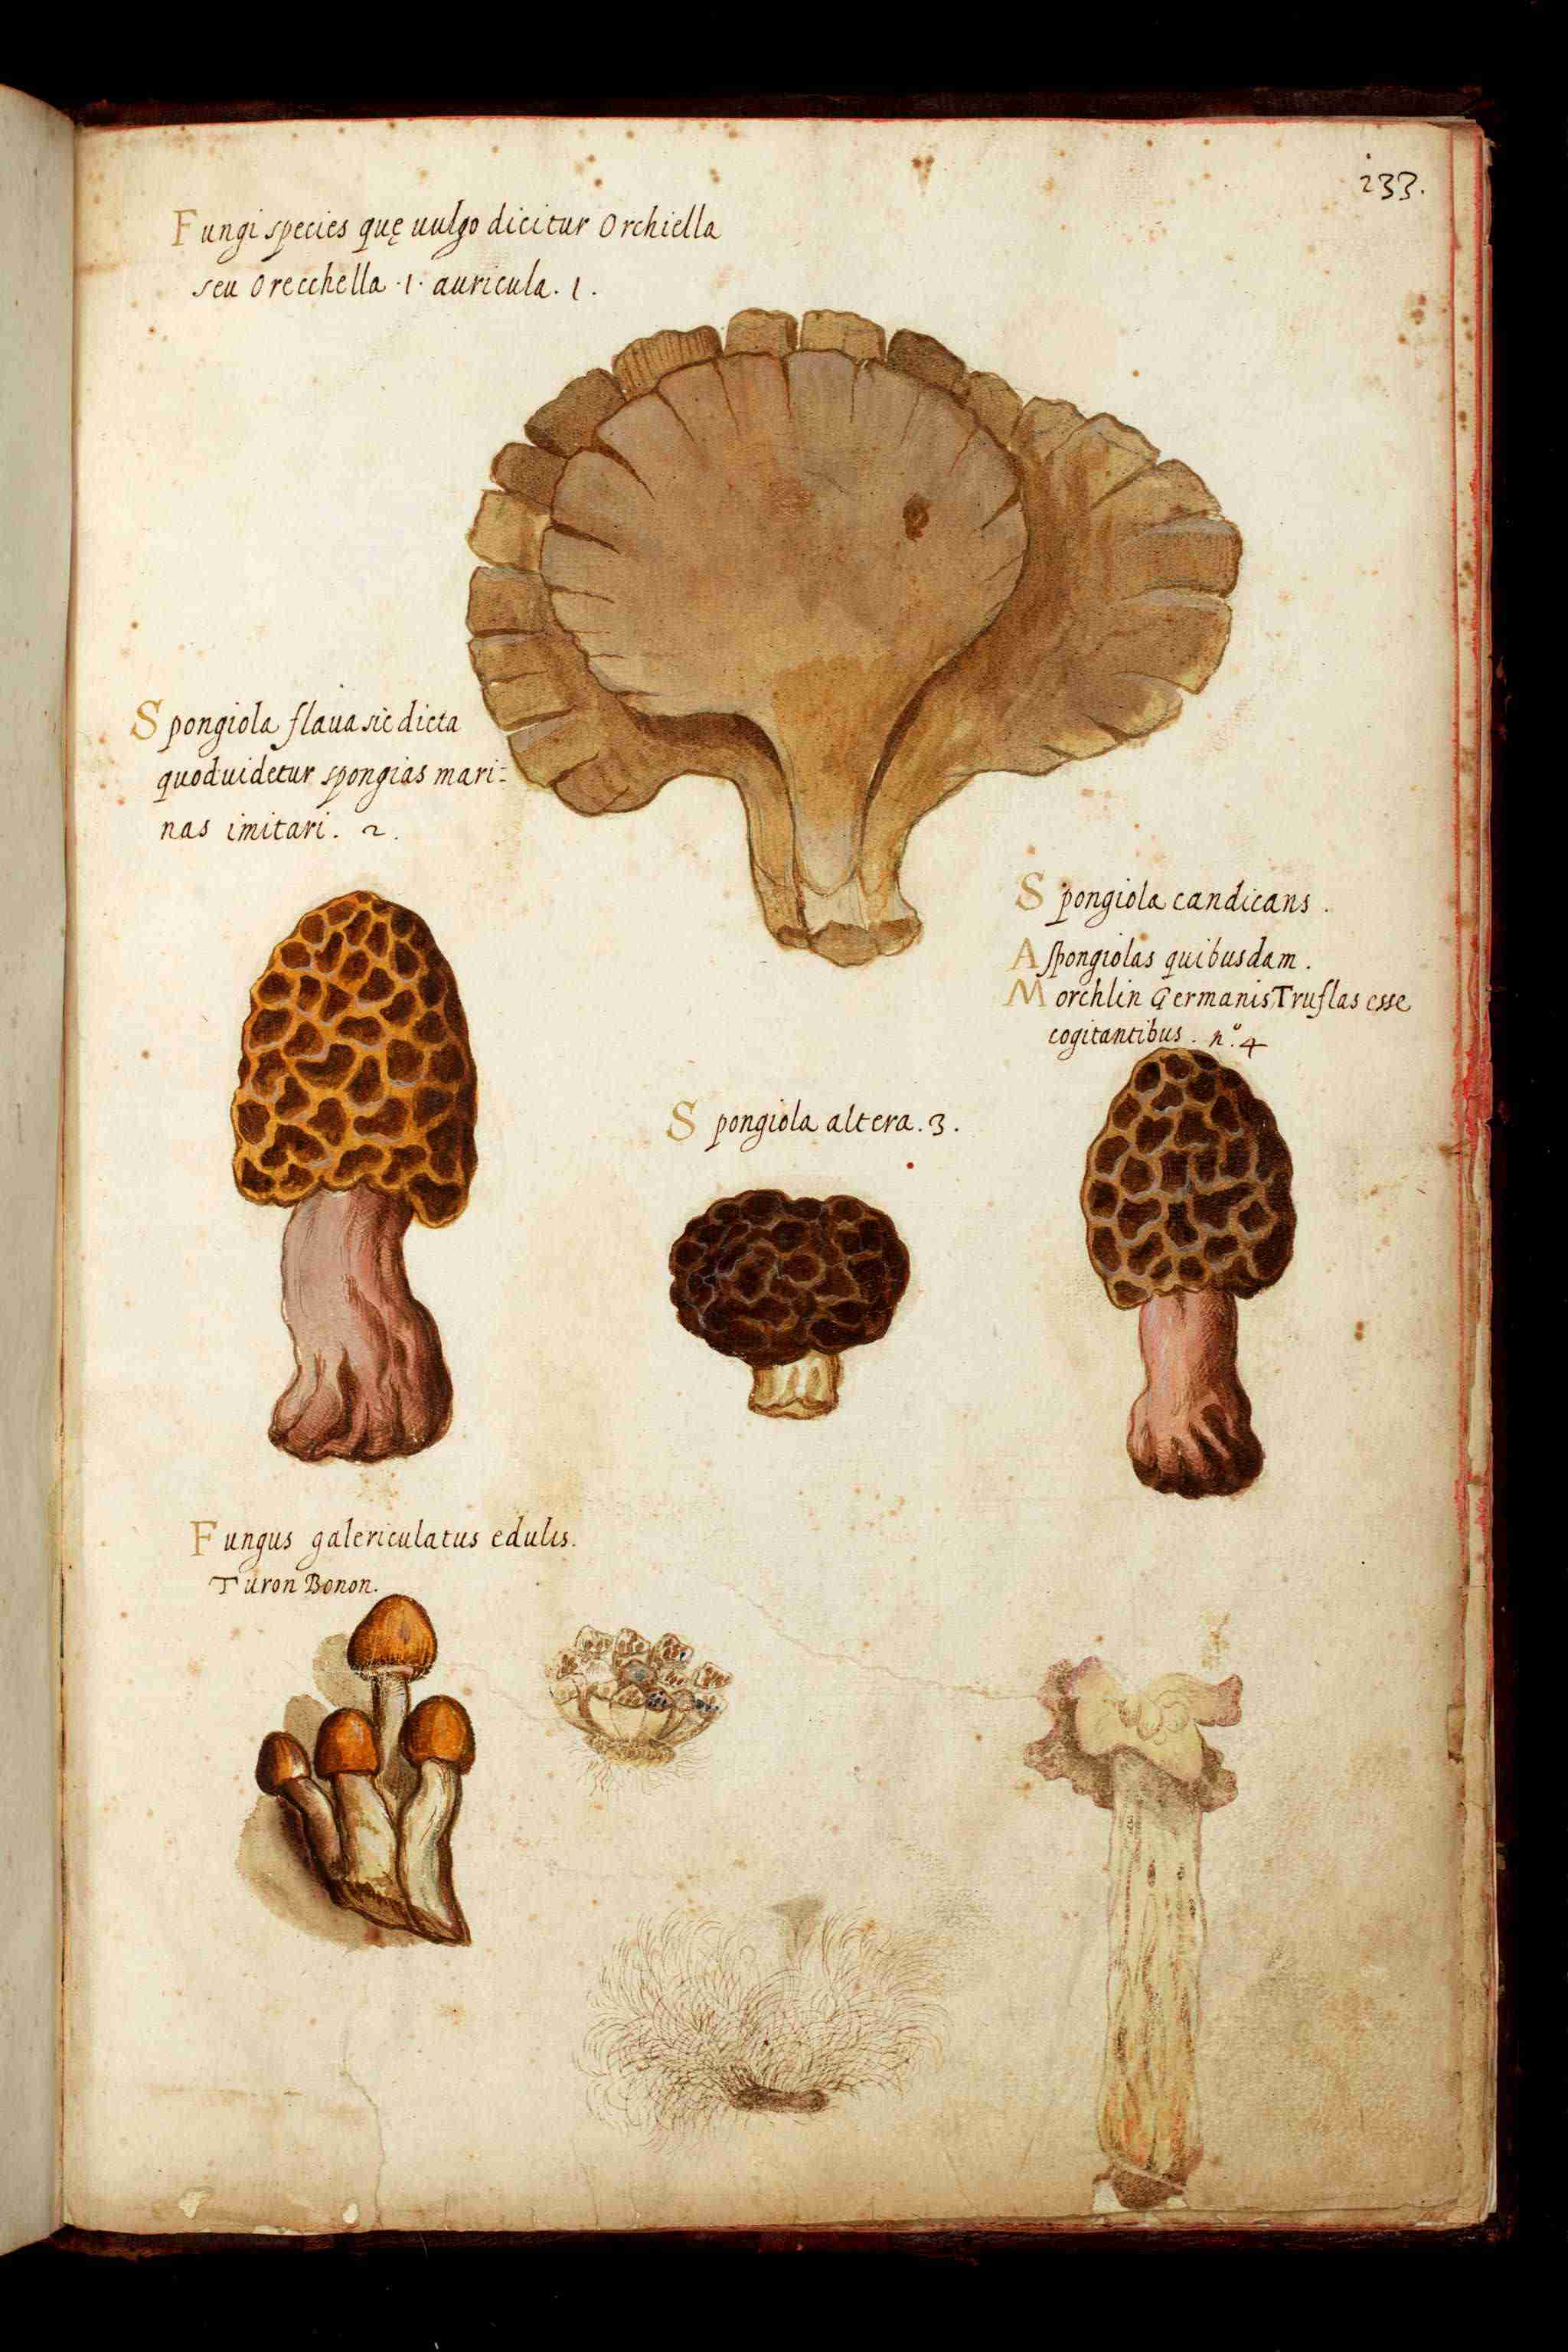 233.
Fungi species quę uulgo dicitur Orchiella
seu Orecchella ·1· auricula. 1.
Spongiola flaua sic dicta
quod uidetur spongias mari=
nas imitari. 2.
Spongiola candicans.
A spongiolas quibusdam.
Morchlin Germanis Truflas esse
cogitantibus. nº. 4
Spongiola altera. 3.
Fungus galericulatus edulis.
Turon Bonon.